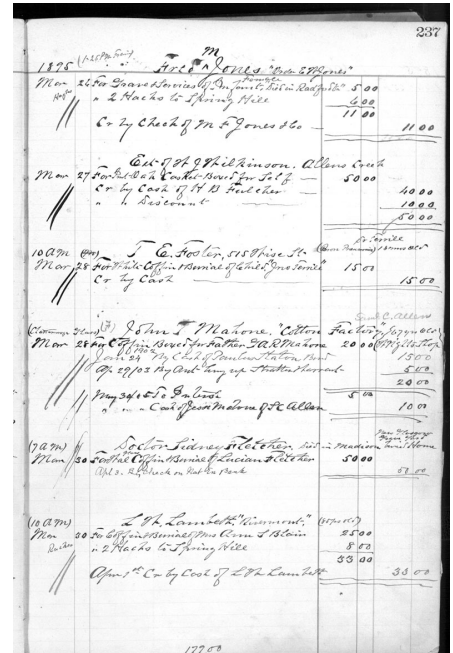 237
1895 (1-25 PM Train) Fred M Jones "Order E M Jones"
Mar 26 For Grave & Services of Infant, died in 5 00
" 2 Hacks to Spring Hill 6 00
11 00
Cr by Check of M F Jones & Co 11 00
Est of W J Wilkinson. Allens Creek
Mar 27 For Casket Boxed for Self 50 00
Cr by Cash of H B Fulcher 40 00
" " Discount 10 00
50 00
10 AM T. E. Foster, 515 Wise St
Mar 28 For White Coffin & Burial of Child, "Jno Terrile" 15 00
Cr by Cash 15 00
Saml C. Allen
John T Mahone "Cotton Factory"
Mar 28 For Coffin Boxed for Father D.A.R Mahone 20 00
Jan 24 1902 By Cash of 15 00
Ap 29/03 By 5 00
20 00
May 30/05 To 5 00
" " " Cash of Mahone & S C Allen 10 00
(9 AM) Doctor Sidney Fletcher, died in Madison
Mar 30 For Coffin & Burial of Lucian Fletcher 50 00
Apl 3. By Check on Nat Ex Bank 50 00
(10 AM) L W Lambeth, "Rivermont,"
Mar 30 For Coffin & Burial of Mrs Ann S Blain 25 00
" 2 Hacks to Spring Hill 8 00
33 00
Apr 1st Cr by Cash of L W Lambeth 33 00
179 00